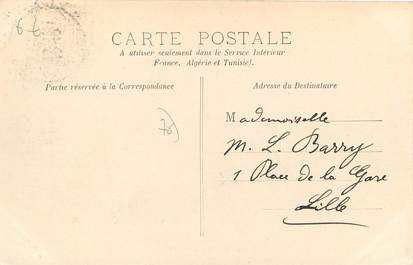 6 L
CARTE POSTALE
A utiliser seulement dans le Service Intérieur
France, Algérie et Tunisie).
Partie réservée à la Correspondance
Adresse du Destinataire
78)
Mademoiselle
M. L. Barry
1 Place de la Gare
Lille